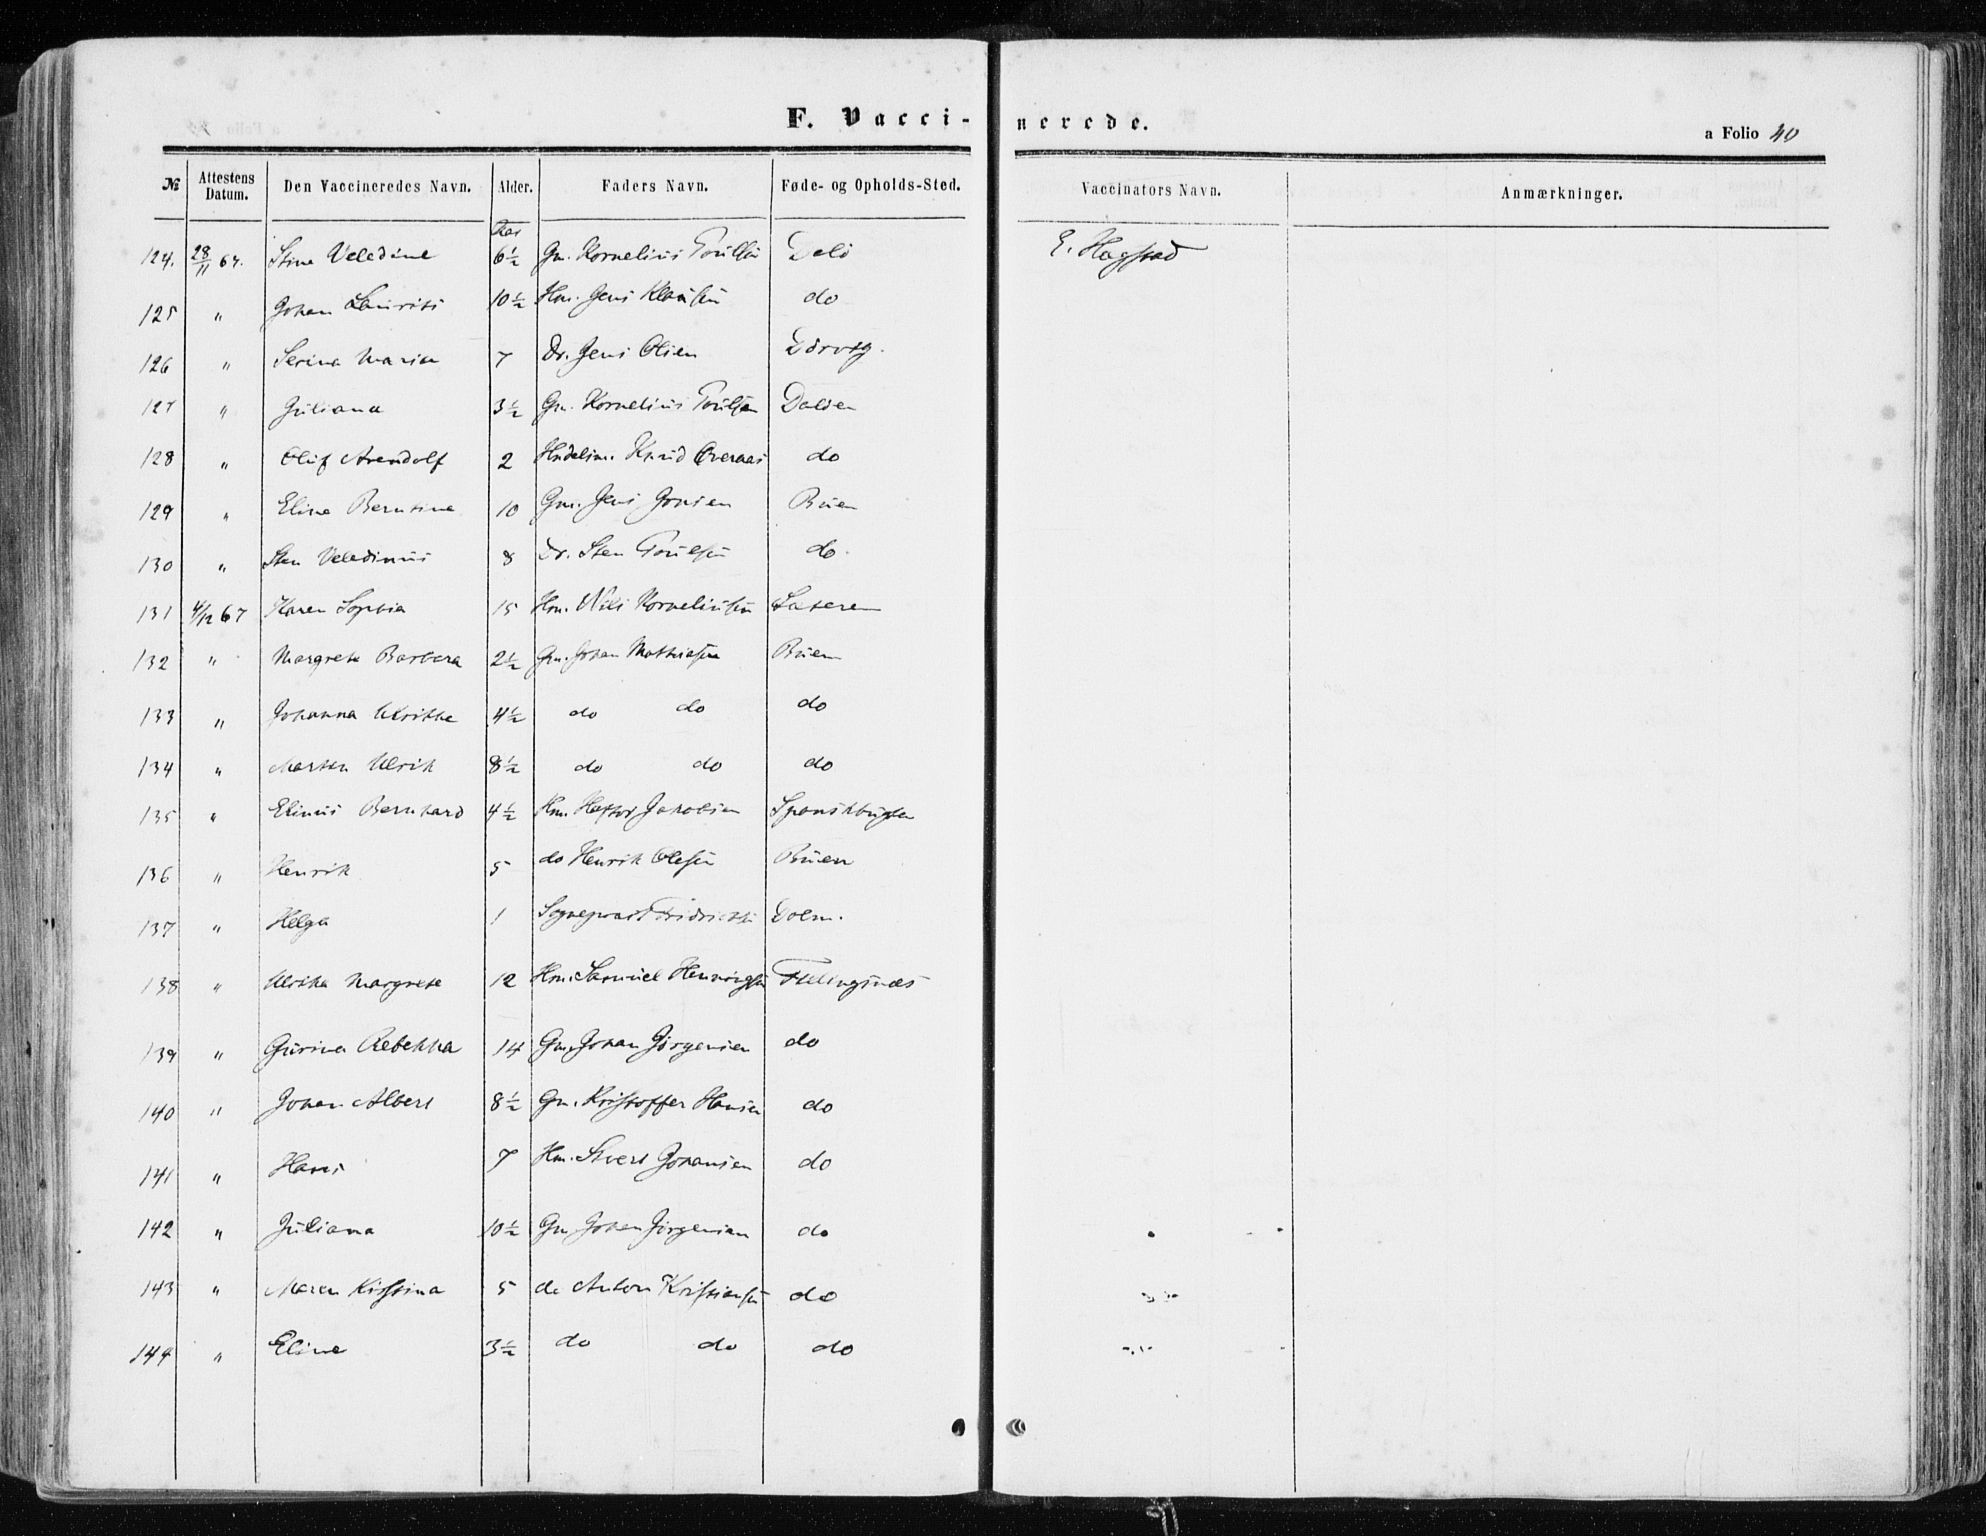 F. Vaccinerede.
a Folio 40
№ Attestens Datum. Den Vaccineredes Navn. Alder. Faders Navn. Føde- og Opholds-Sted. Vaccinators Navn. Anmærkninger.
Aar
124. 28/11 67. Stine Veledine 6½ Gm. Kornelius Poulsen E. Hagstad
125 " Johan Laurits 10½ Hm. Jens Klausen do
126 " Serina Maria 7 Dr. Jens Olsen
127 " Juliana 3½ Gm. Kornelius Poulsen Dolden
128 " Oluf Arendolf 2 Knud Overaas do
129 " Eline Berntine 10 Gm. Jens Jonsen Buen
130 " Sten Veledinus 8 Dr. Sten Poulsen do.
131 4/12 67 Karen Sophia 15 Hm. Nils Korneliussen
132 " Margrete Barbara 2½ Gm. Johan Mathiasen Buen
133 " Johanna Ulrikke 4½ do do do
134 " Morten Ulrik 8½ do do do
135 " Elinus Bernhard 4½ Hm. Jakobsen
136 " Henrik 5 do Henrik Olesen Buen
137 " Helga 1 Dolm.
138 " Ulrika Margrete 12 Hm. Samuel Henningsen Fillingsnæs
139 " Gurina Rebekka 14 Gm. Johan Jørgensen do
140 " Johan Albert 8½ Gm. Kristoffer Hansen do
141 " Hans 7 Hm. Sivert Johansen do
142 " Juliana 10½ Gm. Johan Jørgensen do
143 " Maren Kirstina 5 do Anton Kristiansen do
144 " Eline 3½ do do do